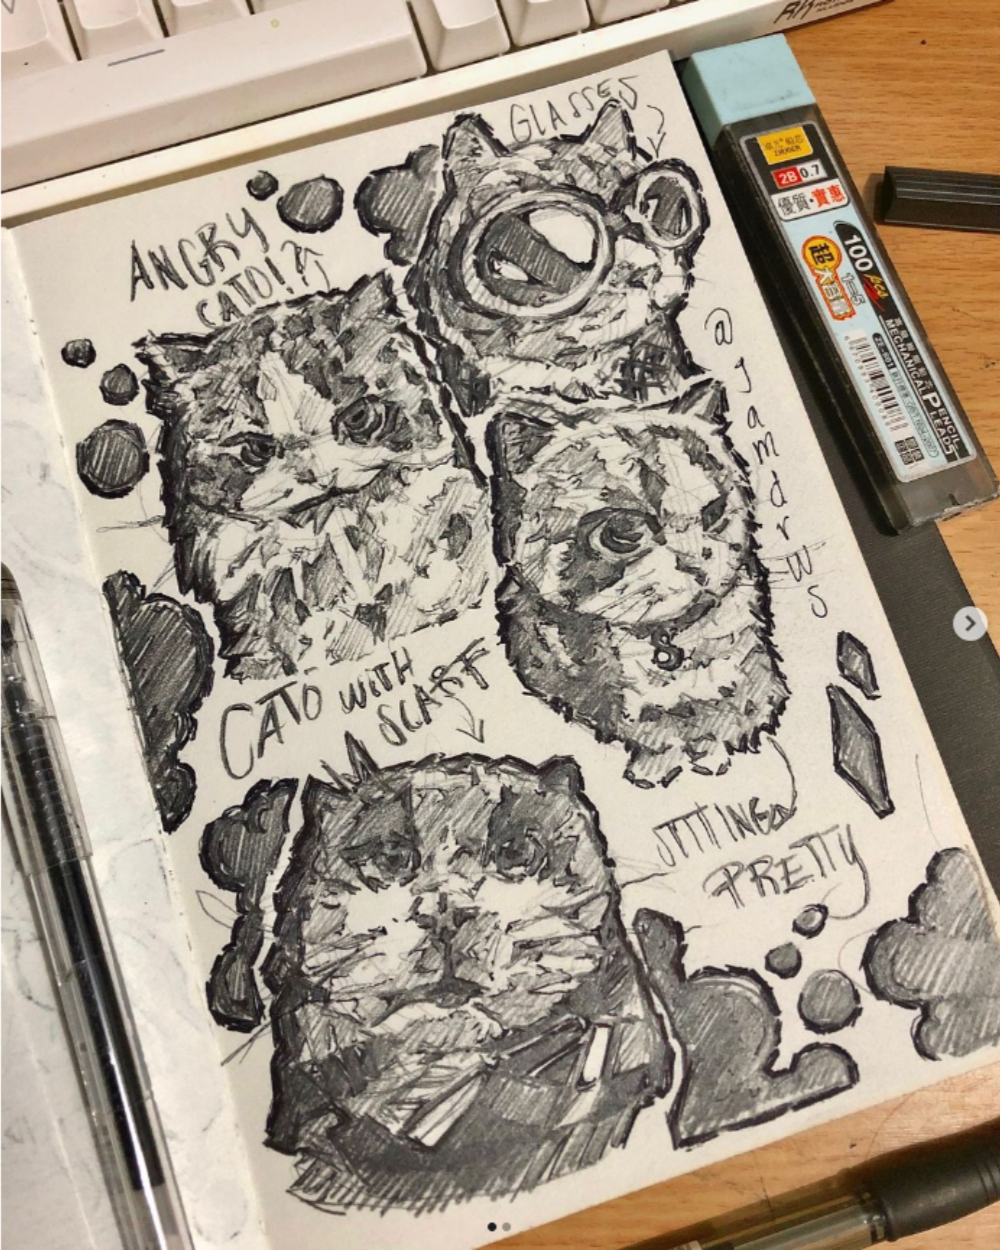 GLASSES
ANGRY
CATO!?
@jamdrws
CATO WITH
SCARF
SITTING
PRETTY
8
2B 0.7
優質·實惠
100 pcs
超大容量
MECHANICAL PENCIL
LEADS